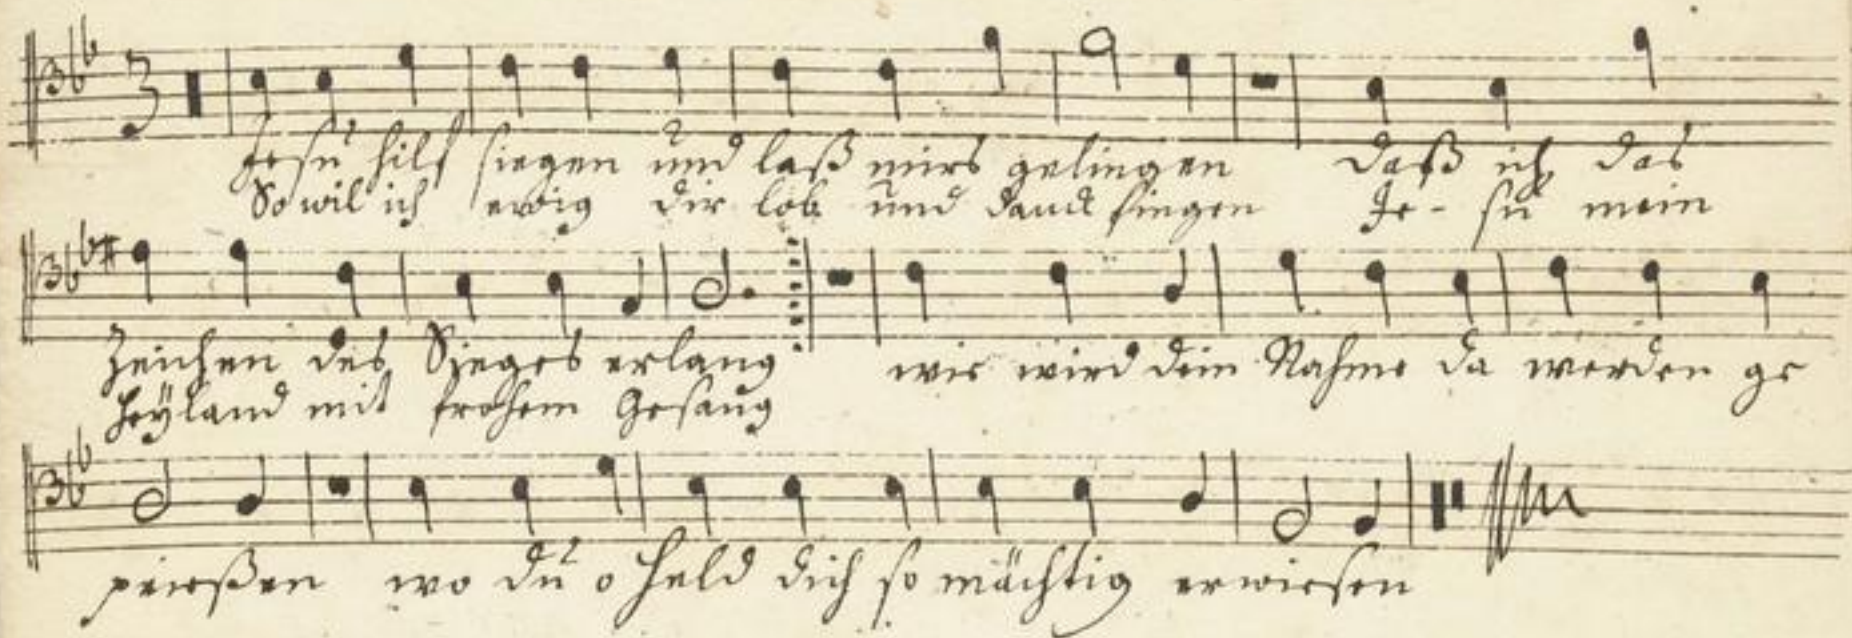 Jesu hilf siegen und laß mirs gelingen daß ich das
So wil ich ewig dir lob und danck singen Je- su mein
Zeichen des Sieges erlang wie wird dein Nahme da werden ge
Heÿland mit frohem Gesang
prießen wo du o Held dich so mächtig erwiesen